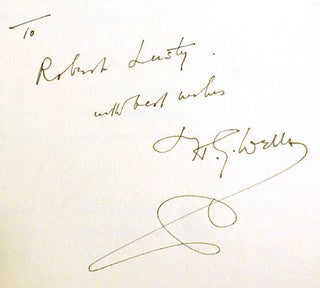 To
Robert Lusty.
with best wishes
H. G. Wells